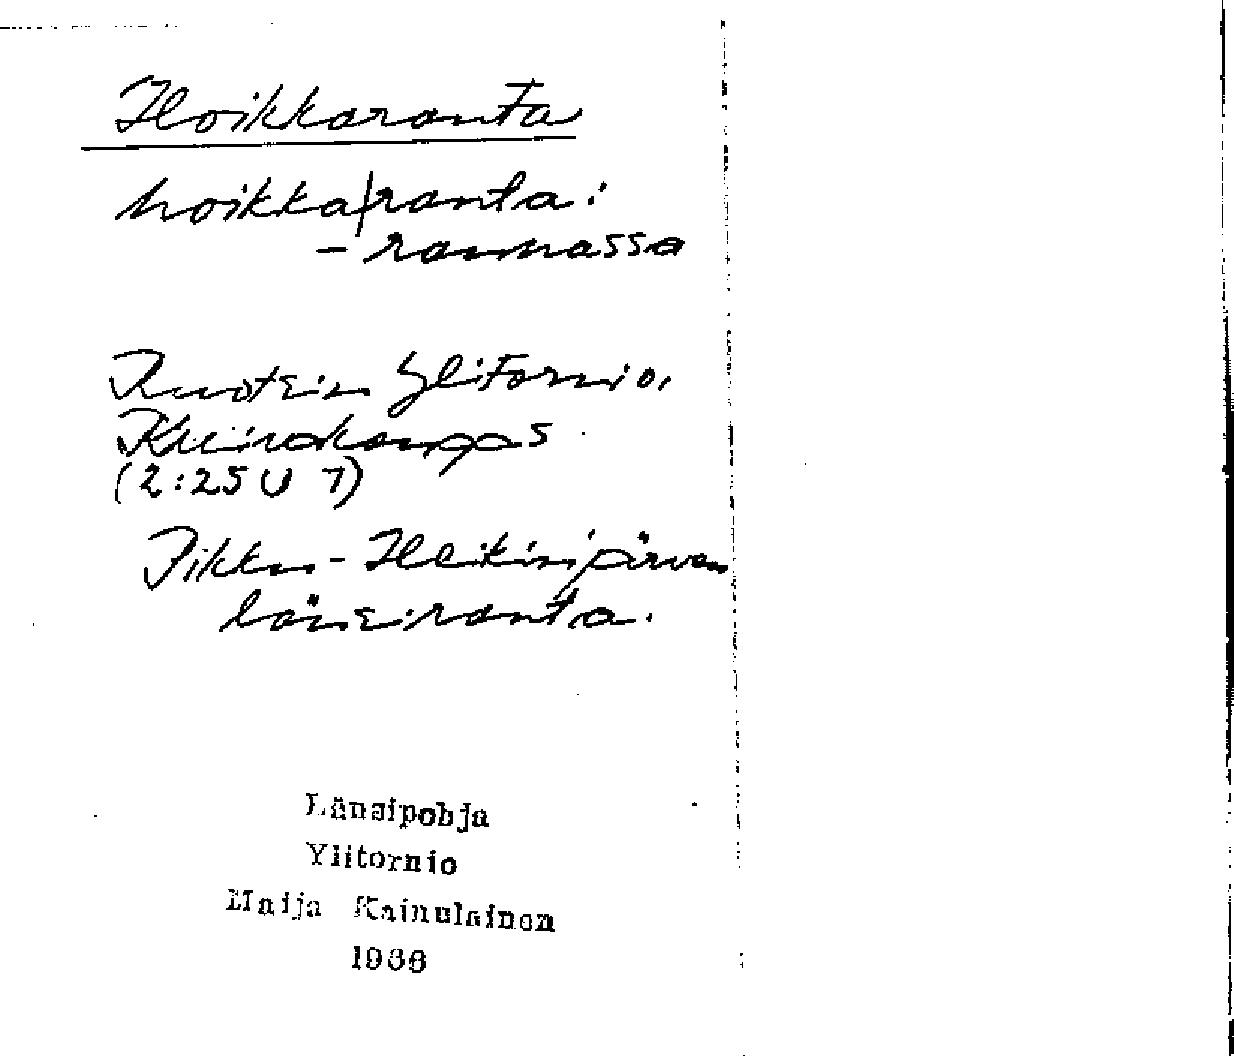 Hoikkaranta
hoikka|ranta:
- rannassa
Ruotsin Ylitornio,
Kuivakangas
(2:25 U 7)
Pikku-Heikinjärven
länsiranta.
Länsipohja
Ylitornio
Maija Kainulainen
1966